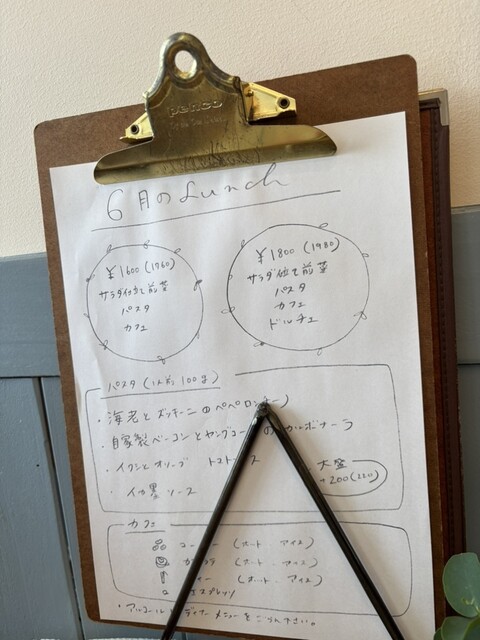 penco
6月のLunch
¥1600(1760)
サラダ仕立て前菜
パスタ
カフェ
¥1800(1980)
サラダ仕立て前菜
パスタ
カフェ
ドルチェ
パスタ(1人前 100g)
・海老とズッキーニのペペロンチーノ
・自家製ベーコンとヤングコーンのカルボナーラ
・イワシとオリーブ トマトソース
・イカ墨ソース
大盛
+200(220)
カフェ
コーヒー(ホット アイス)
(ホット アイス)
ティー(ホット アイス)
エスプレッソ
・アルコールは ディナーメニューをごらん下さい。